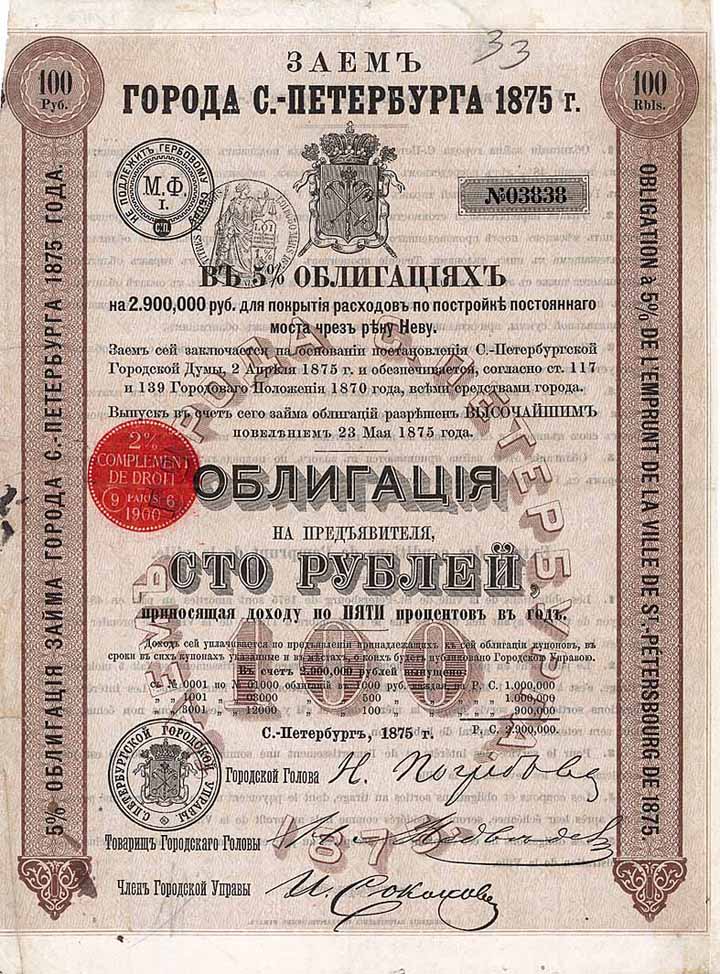 33
ЗАЕМЪ
ГОРОДА С.-ПЕТЕРБУРГА 1875 г.
100
Руб.
100
Rbls.
НЕ ПОДЛЕЖИТЪ ГЕРБОВОМУ СБОРУ
М.Ф.
I.
С.П.
№03838
ВЪ 5% ОБЛИГАЦІЯХЪ
на 2.900,000 руб. для покрытія расходовъ по постройкѣ постояннаго
моста чрезъ рѣку Неву.
Заемъ сей заключается на основаніи постановленія С.-Петербургской
Городской Думы, 2 Апрѣля 1875 г. и обезпечивается, согласно ст. 117
и 139 Городоваго Положенія 1870 года, всѣми средствами города.
Выпускъ въ счетъ сего займа облигацій разрѣшенъ ВЫСОЧАЙШИМЪ
повелѣніемъ 23 Мая 1875 года.
2%
COMPLEMENT
DE DROIT
9 PARIS 6
1900
ОБЛИГАЦІЯ
НА ПРЕДЪЯВИТЕЛЯ,
СТО РУБЛЕЙ,
приносящая доходу по ПЯТИ процентовъ въ годъ.
100
Доходъ сей уплачивается по предъявленіи принадлежащихъ къ сей облигаціи купоновъ, въ
сроки въ сихъ купонахъ указанные и въ мѣстахъ, о коихъ будетъ публиковано Городскою Управою.
Въ счетъ 2.900,000 рублей выпущено:
съ № 0001 по № 01000 облигацій въ 1,000 руб. каждая на Р. С. 1.000,000
„ „ 1001 „ 03000 „ „ 500 „ „ „ „ 1.000,000
„ „ 3001 „ 12000 „ „ 100 „ „ „ „ 900,000
С.-Петербургъ, 1875 г.
Р. С. 2.900,000
С.ПЕТЕРБУРГСКОЙ ГОРОДСКОЙ УПРАВЫ
Городской Голова Н. Погребовъ
Товарищъ Городскаго Головы Медвѣдевъ
Членъ Городской Управы И. Соколовъ
1875
5% ОБЛИГАЦІЯ ЗАЙМА ГОРОДА С.-ПЕТЕРБУРГА 1875 ГОДА.
OBLIGATION à 5% DE L'EMPRUNT DE LA VILLE DE ST.-PÉTERSBOURG DE 1875